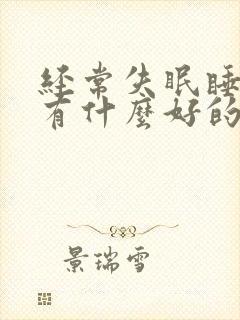 經常失眠睡
有什麼好的
景瑞雪